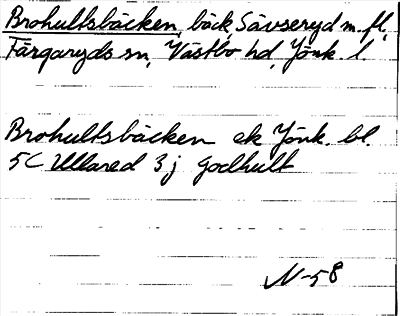 Brohultsbäcken, bäck, Sävseryd m.fl,
Färgaryds sn, Västbo hd, Jönk. l.
Brohultsbäcken ek Jönk. bl.
5C Ullared 3 j Godhult
N-58